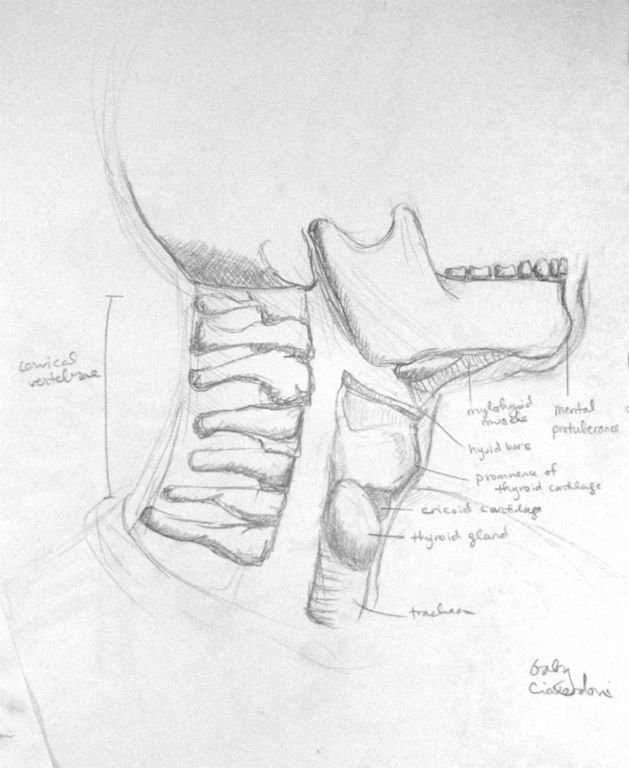 cervical
vertebrae
mylohyoid
muscle
mental
protuberance
hyoid bone
prominence of
thyroid cartilage
cricoid cartilage
thyroid gland
trachea
Gaby